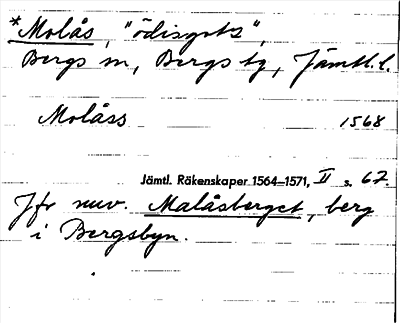 *Molås, "ödisgots",
Bergs sn, Bergs tg, Jämtl. l.
Molåss 1568
Jämtl. Räkenskaper 1564–1571, II s. 62.
Jfr nuv. Malåsberget, berg
i Bergsbyn.